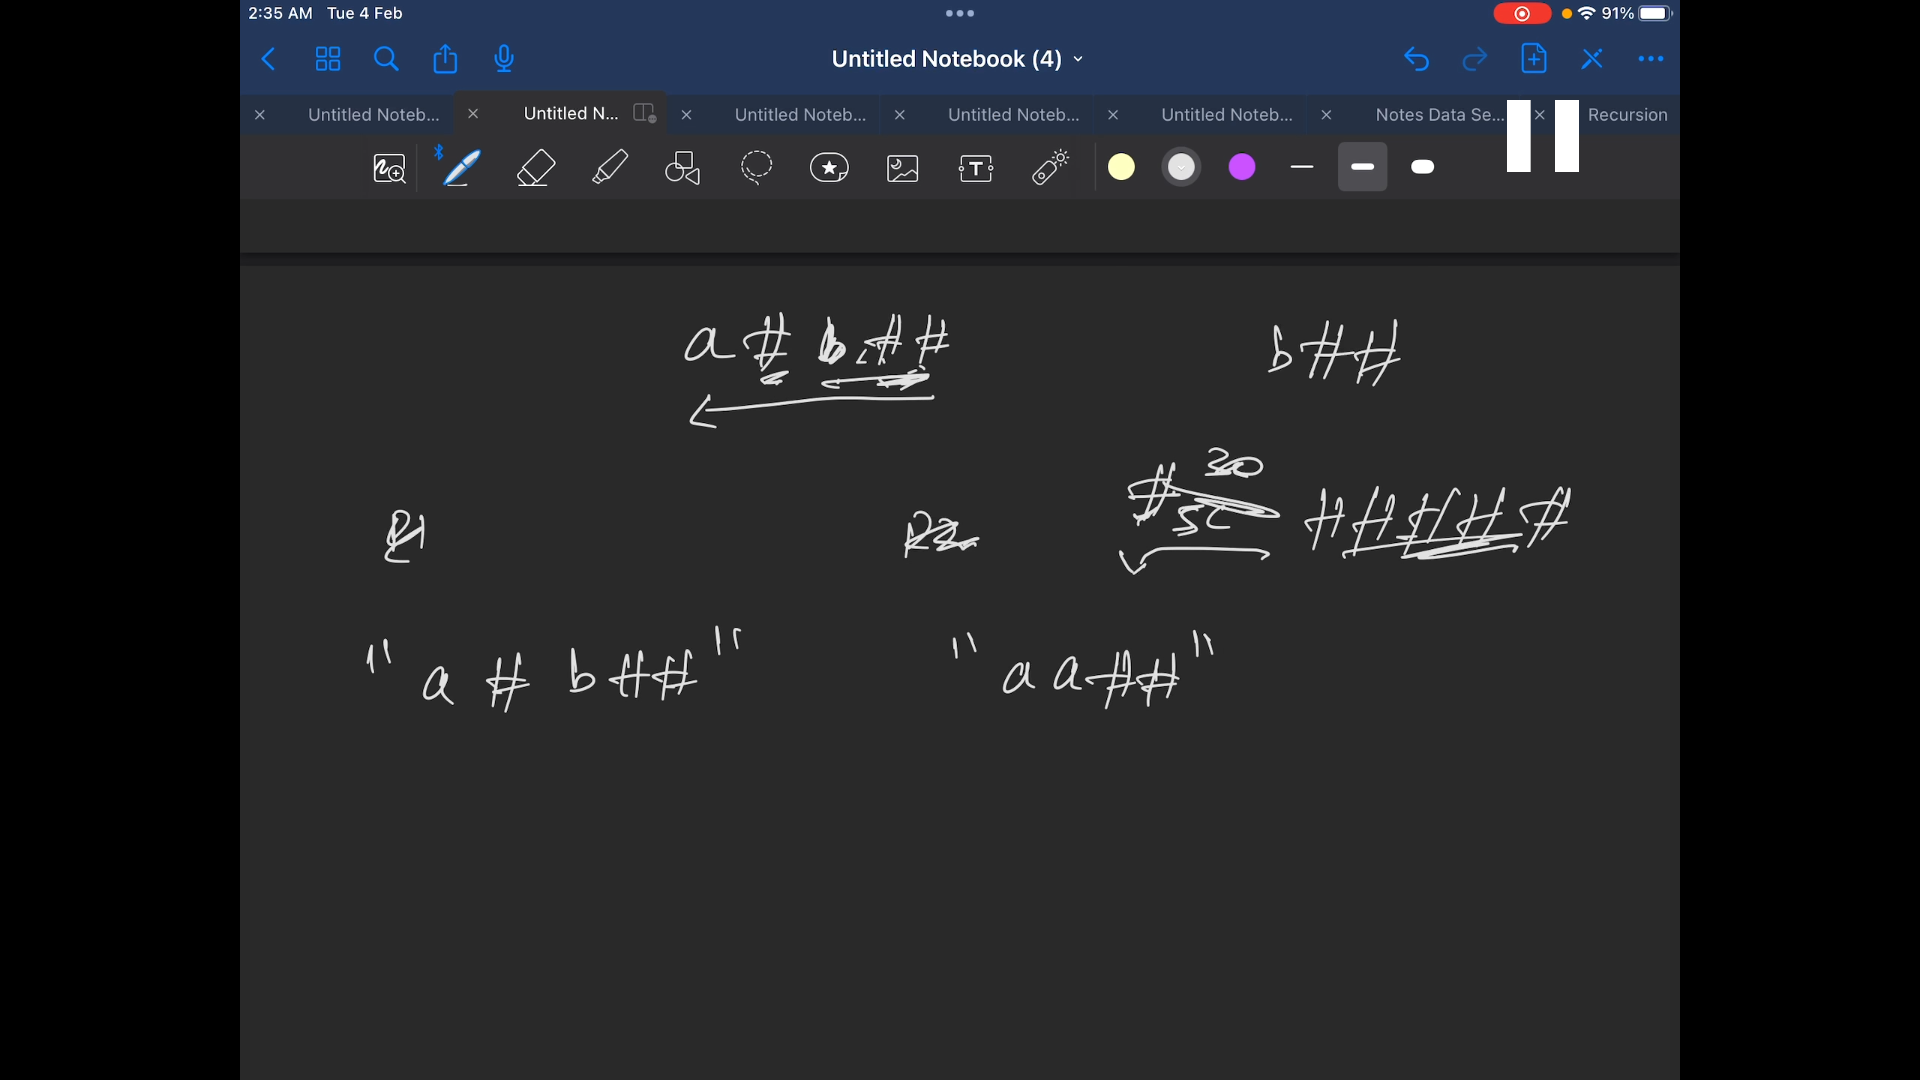 2:35 AM Tue 4 Feb 91%
Untitled Notebook (4)
Untitled Noteb... Untitled N... Untitled Noteb... Untitled Noteb... Untitled Noteb... Notes Data Se... Recursion
T
a # b # # b # #
# # # # #
" a # b # # " " a a # # "